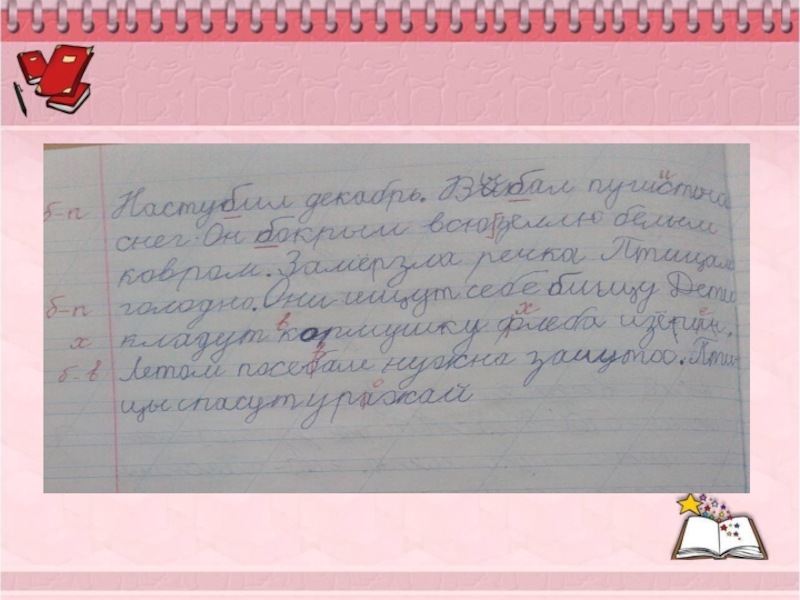 б-п Настубил декабрь. Выбал пушистой
снег. Он бокрыл всю землю белым
ковром. Замёрзла речка Птицам
б-п голодно. Они ищут себе бищу Дети
х кладут в кормушку флеба изёрны.
б-в Летом посевам нужна защитоа. Пти-
цы спасут уражай